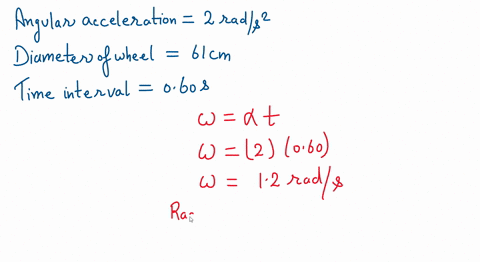 Angular acceleration = 2 rad/s²
Diameter of wheel = 61cm
Time interval = 0.60s
ω = αt
ω = (2) (0.60)
ω = 1.2 rad/s
Ra